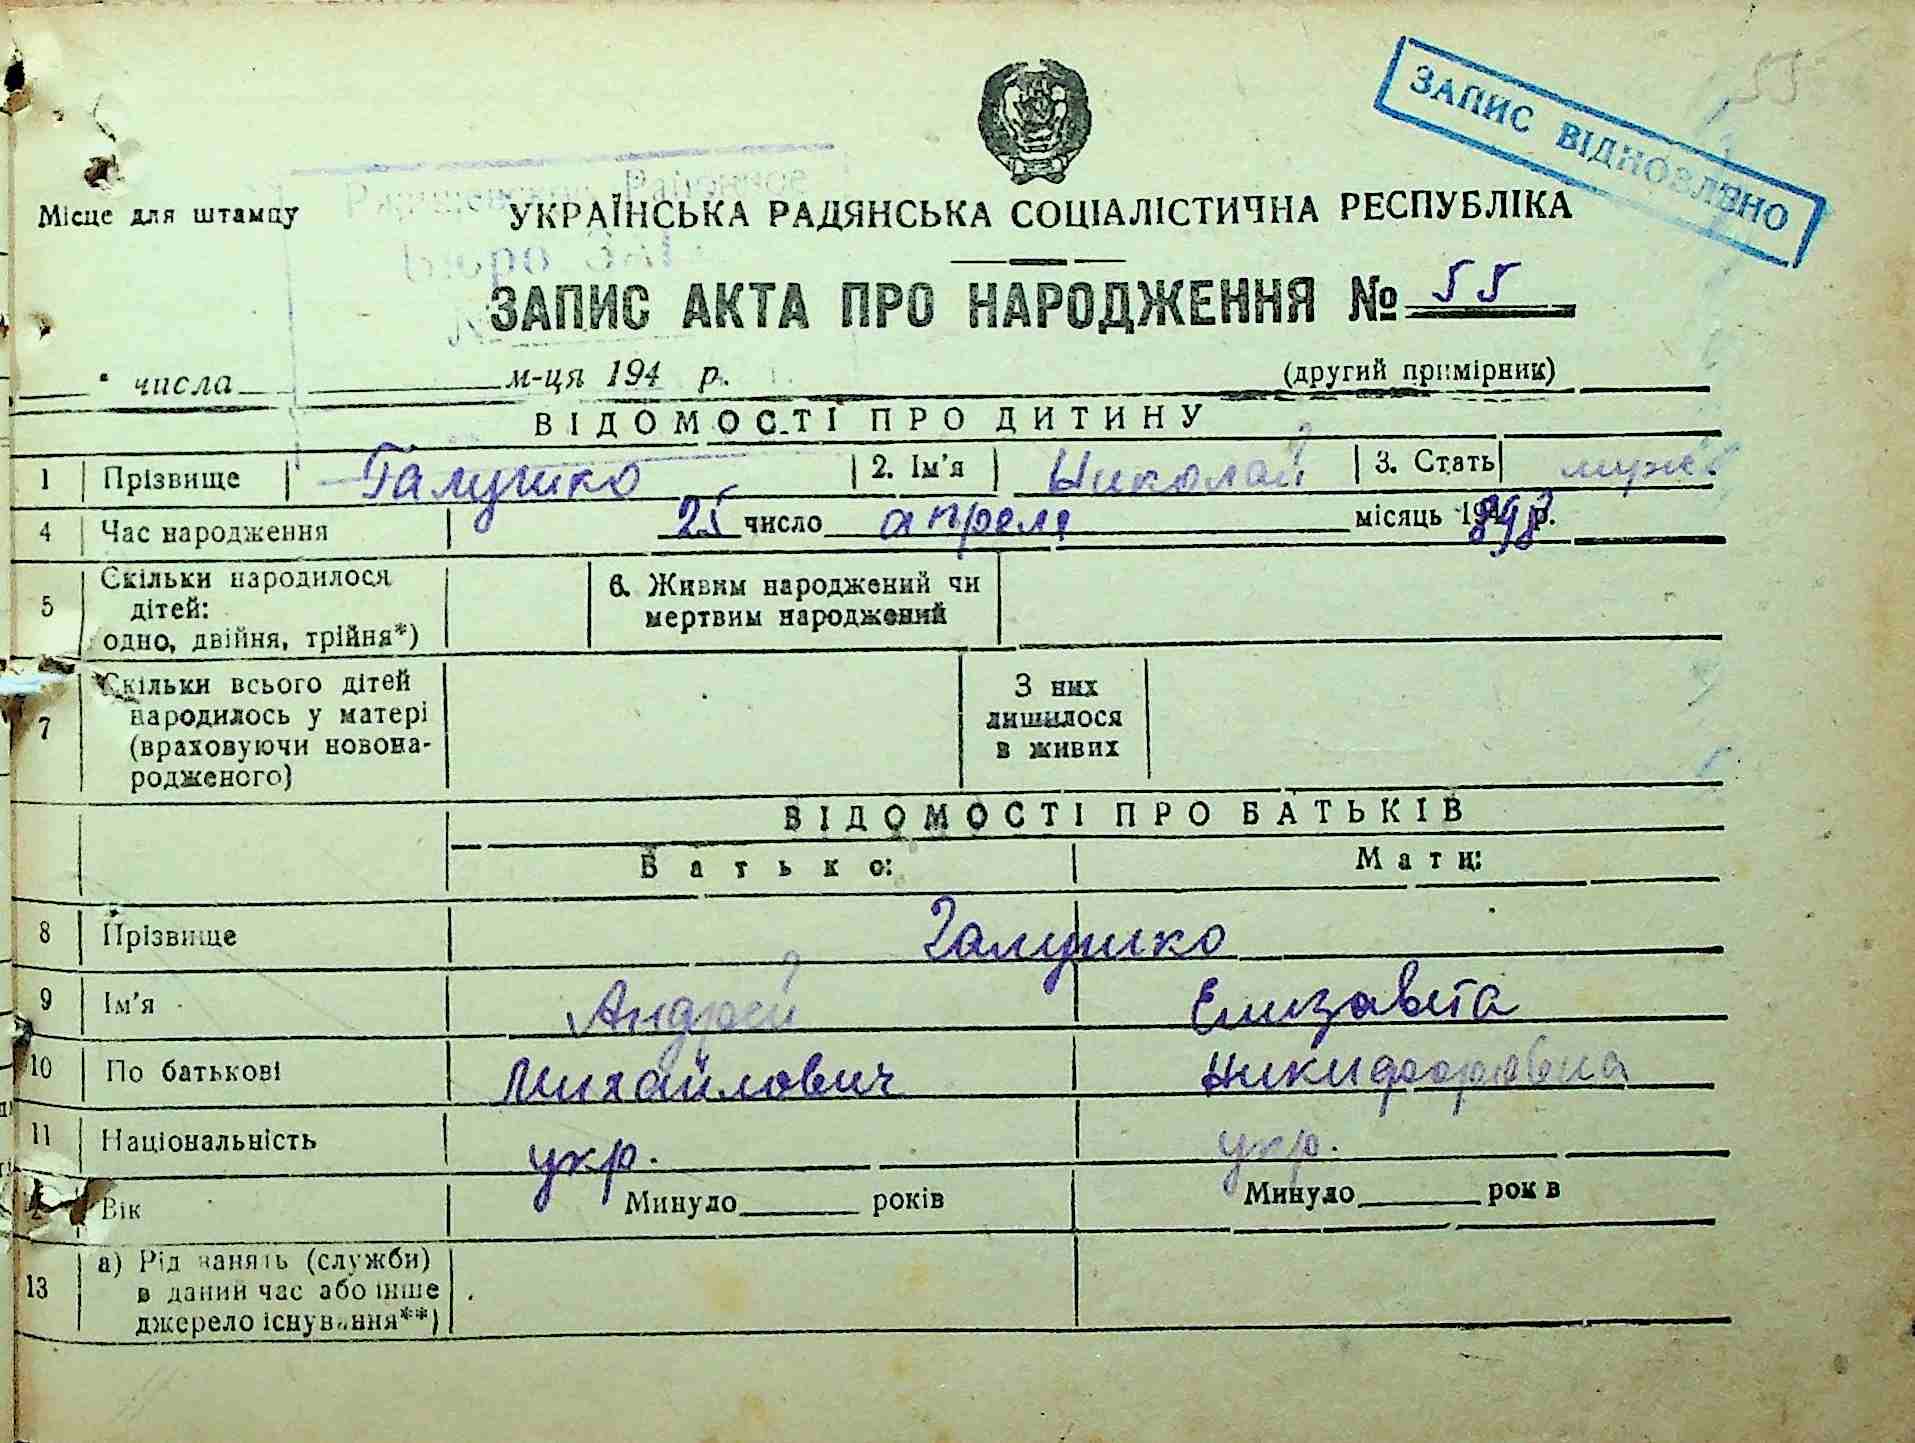 55
ЗАПИС ВІДНОВЛЕНО
Місце для штампу
Районное
Бюро
УКРАЇНСЬКА РАДЯНСЬКА СОЦІАЛІСТИЧНА РЕСПУБЛІКА
ЗАПИС АКТА ПРО НАРОДЖЕННЯ № 55
числа м-ця 194 р. (другий примірник)
ВІДОМОСТІ ПРО ДИТИНУ
1 Прізвище Галушко 2. Ім'я Николай 3. Стать
4 Час народження 25 число апреля місяць р.
5 Скільки народилося
дітей:
одно, двійня, трійня*)
6. Живим народжений чи
мертвим народжений
7 Скільки всього дітей
народилось у матері
(враховуючи новона-
родженого)
З них
лишилося
в живих
ВІДОМОСТІ ПРО БАТЬКІВ
Батько: Мати:
8 Прізвище Галушко
9 Ім'я Андрей Елизавета
10 По батькові Михайлович Никифоровна
11 Національність укр. укр.
12 Вік Минуло років Минуло рок в
13 а) Рід занять (служби)
в даний час або інше
джерело існування**)